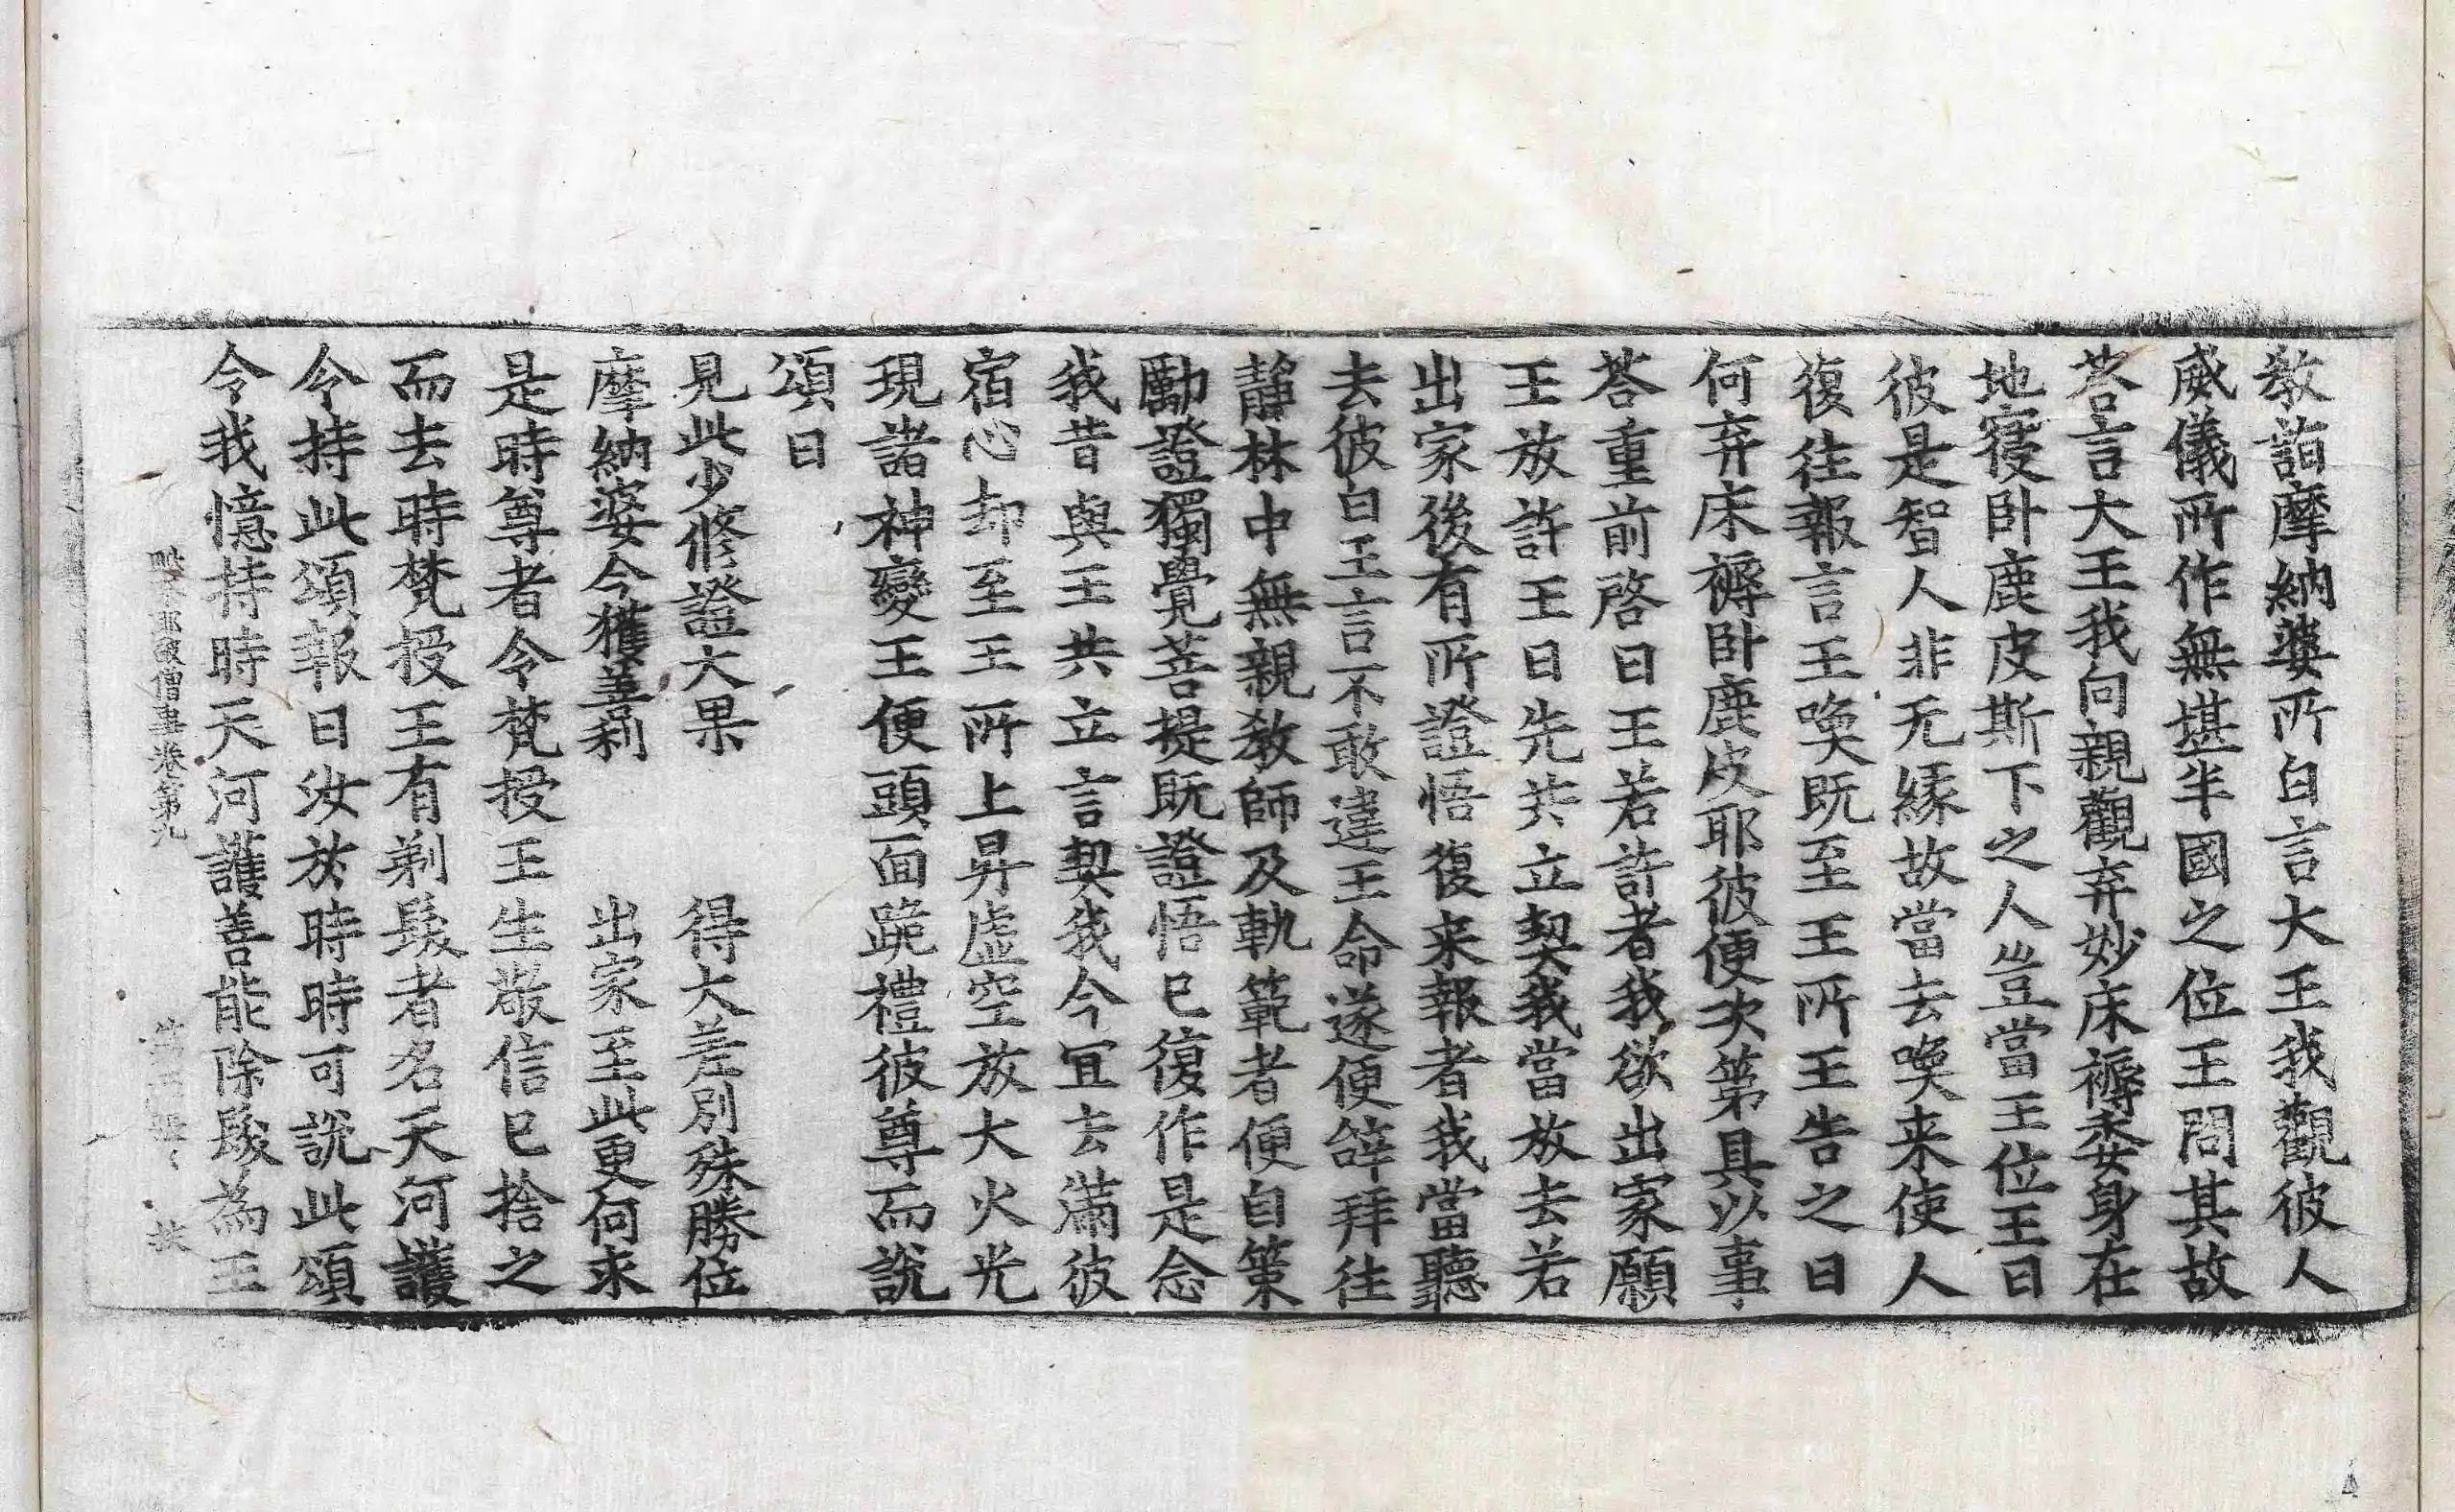 教詣摩納婆所白言大王我觀彼人
威儀所作無堪半國之位王問其故
荅言大王我向親觀弃妙床褥委身在
地寑卧鹿皮斯下之人豈當王位王曰
彼是智人非无緣故當去喚来使人
復往報言王喚既至王所王告之曰
何弃床褥卧鹿皮耶彼便次第具以事
荅重前啓曰王若許者我欲出家願
王放許王曰先共立契我當放去若
出家後有所證悟復来報者我當聽
去彼白王言不敢違王命遂便辝拜往
靜林中無親教師及軌範者便自策
勵證獨覺菩提既證悟已復作是念
我昔與王共立言契我今宜去滿彼
宿心却至王所上昇虛空放大火光
現諸神變王便頭面跪禮彼尊而說
頌曰
見此少修證大果　得大差別殊勝位
摩納婆今獲善利　出家至此更何求
是時尊者令梵授王生敬信已捨之
而去時梵授王有剃髮者名天河護
令持此頌報曰汝於時時可說此頌
令我憶持時天河護善能除髮為王
卷第九